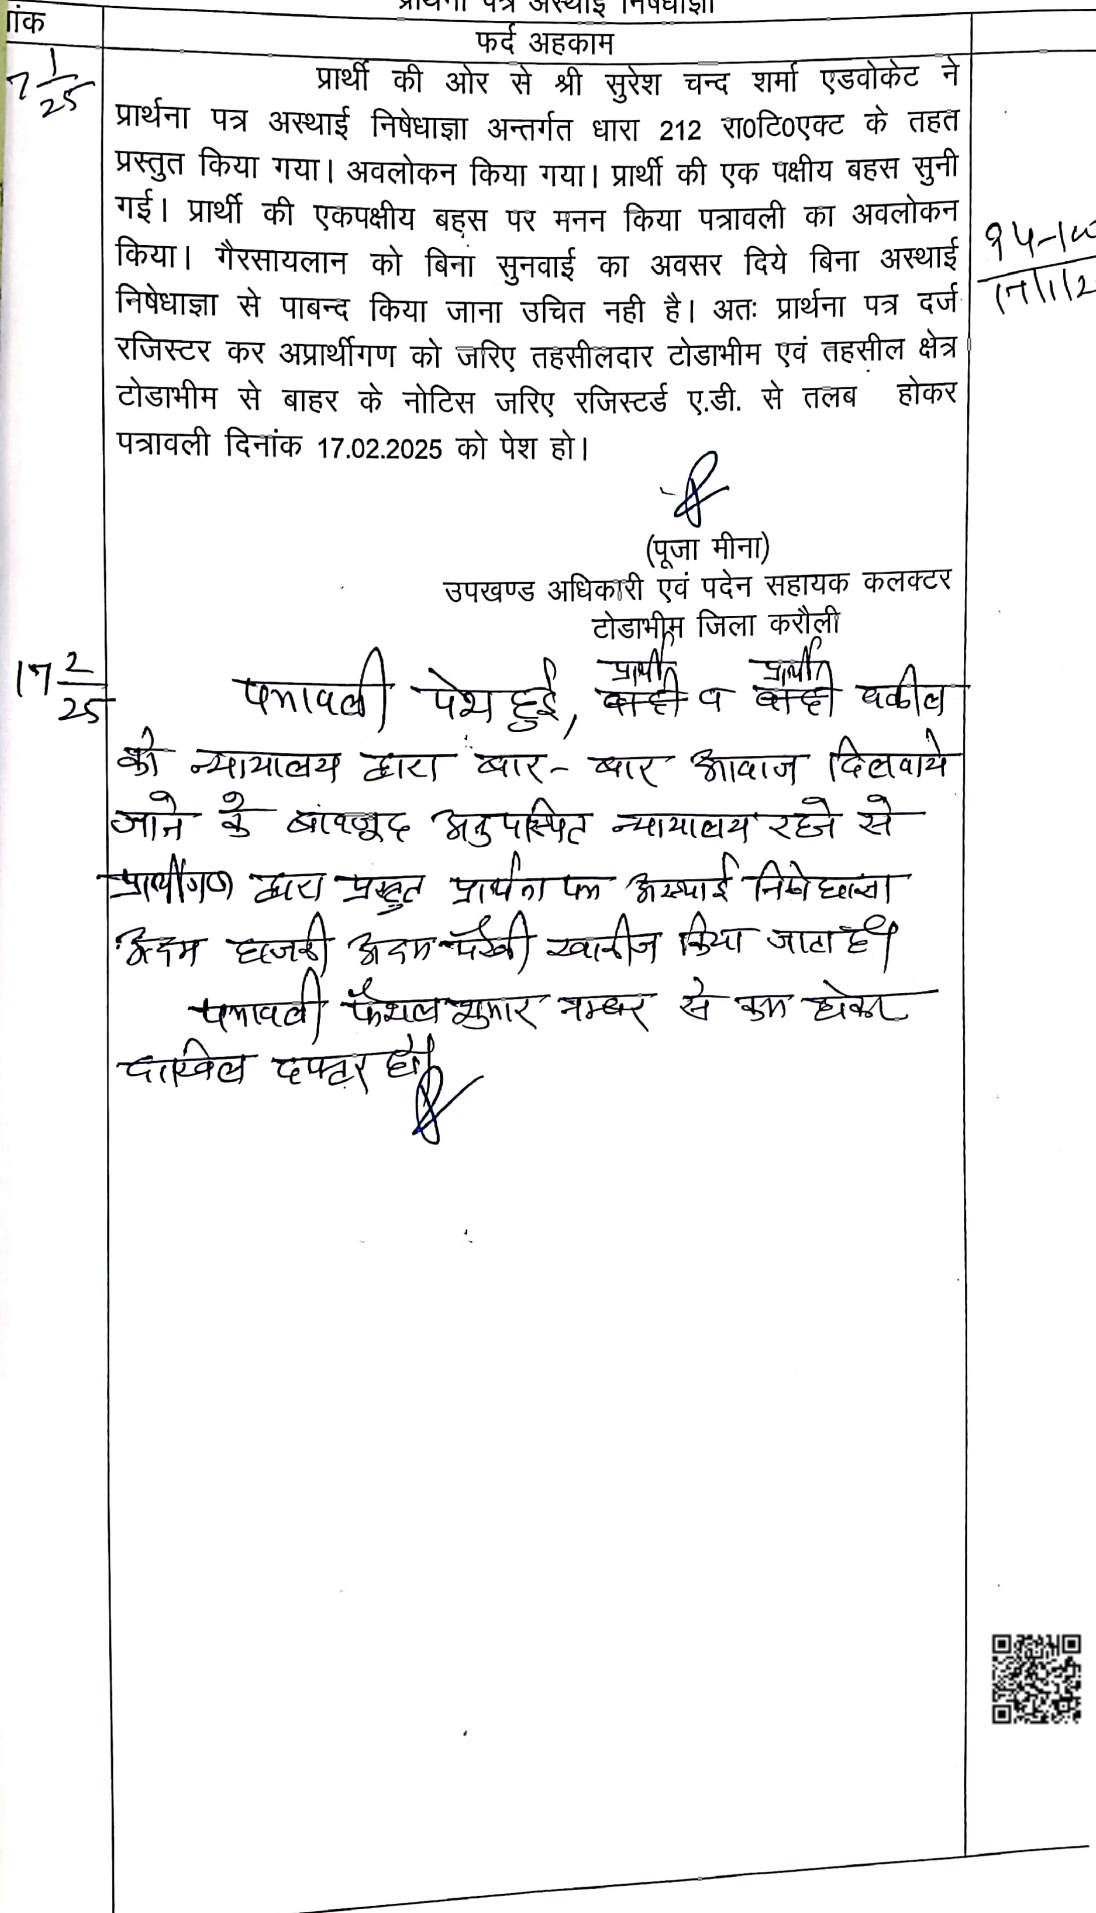 प्रार्थना पत्र अस्थाई निषेधाज्ञा
ांक
फर्द अहकाम
7 1/25
प्रार्थी की ओर से श्री सुरेश चन्द शर्मा एडवोकेट ने
प्रार्थना पत्र अस्थाई निषेधाज्ञा अन्तर्गत धारा 212 रा0टि0एक्ट के तहत
प्रस्तुत किया गया। अवलोकन किया गया। प्रार्थी की एक पक्षीय बहस सुनी
गई। प्रार्थी की एकपक्षीय बहस पर मनन किया पत्रावली का अवलोकन
किया। गैरसायलान को बिना सुनवाई का अवसर दिये बिना अस्थाई
निषेधाज्ञा से पाबन्द किया जाना उचित नही है। अतः प्रार्थना पत्र दर्ज
रजिस्टर कर अप्रार्थीगण को जरिए तहसीलदार टोडाभीम एवं तहसील क्षेत्र
टोडाभीम से बाहर के नोटिस जरिए रजिस्टर्ड ए.डी. से तलब होकर
पत्रावली दिनांक 17.02.2025 को पेश हो।
17/1/2
(पूजा मीना)
उपखण्ड अधिकारी एवं पदेन सहायक कलक्टर
टोडाभीम जिला करौली
17 2/25
प्रार्थी प्रार्थी
पत्रावली पेश हुई, वादी व वादी वकील
को न्यायालय द्वारा बार-बार आवाज दिलवाये
जाने के बावजूद अनुपस्थित न्यायालय रहने से
प्रार्थीगण द्वारा प्रस्तुत प्रार्थना पत्र अस्थाई निषेधाज्ञा
अदम हाजरी अदम पैरवी खारीज किया जाता है।
पत्रावली फैशल शुमार नम्बर से कम होकर
दाखिल दफ्टर हो।